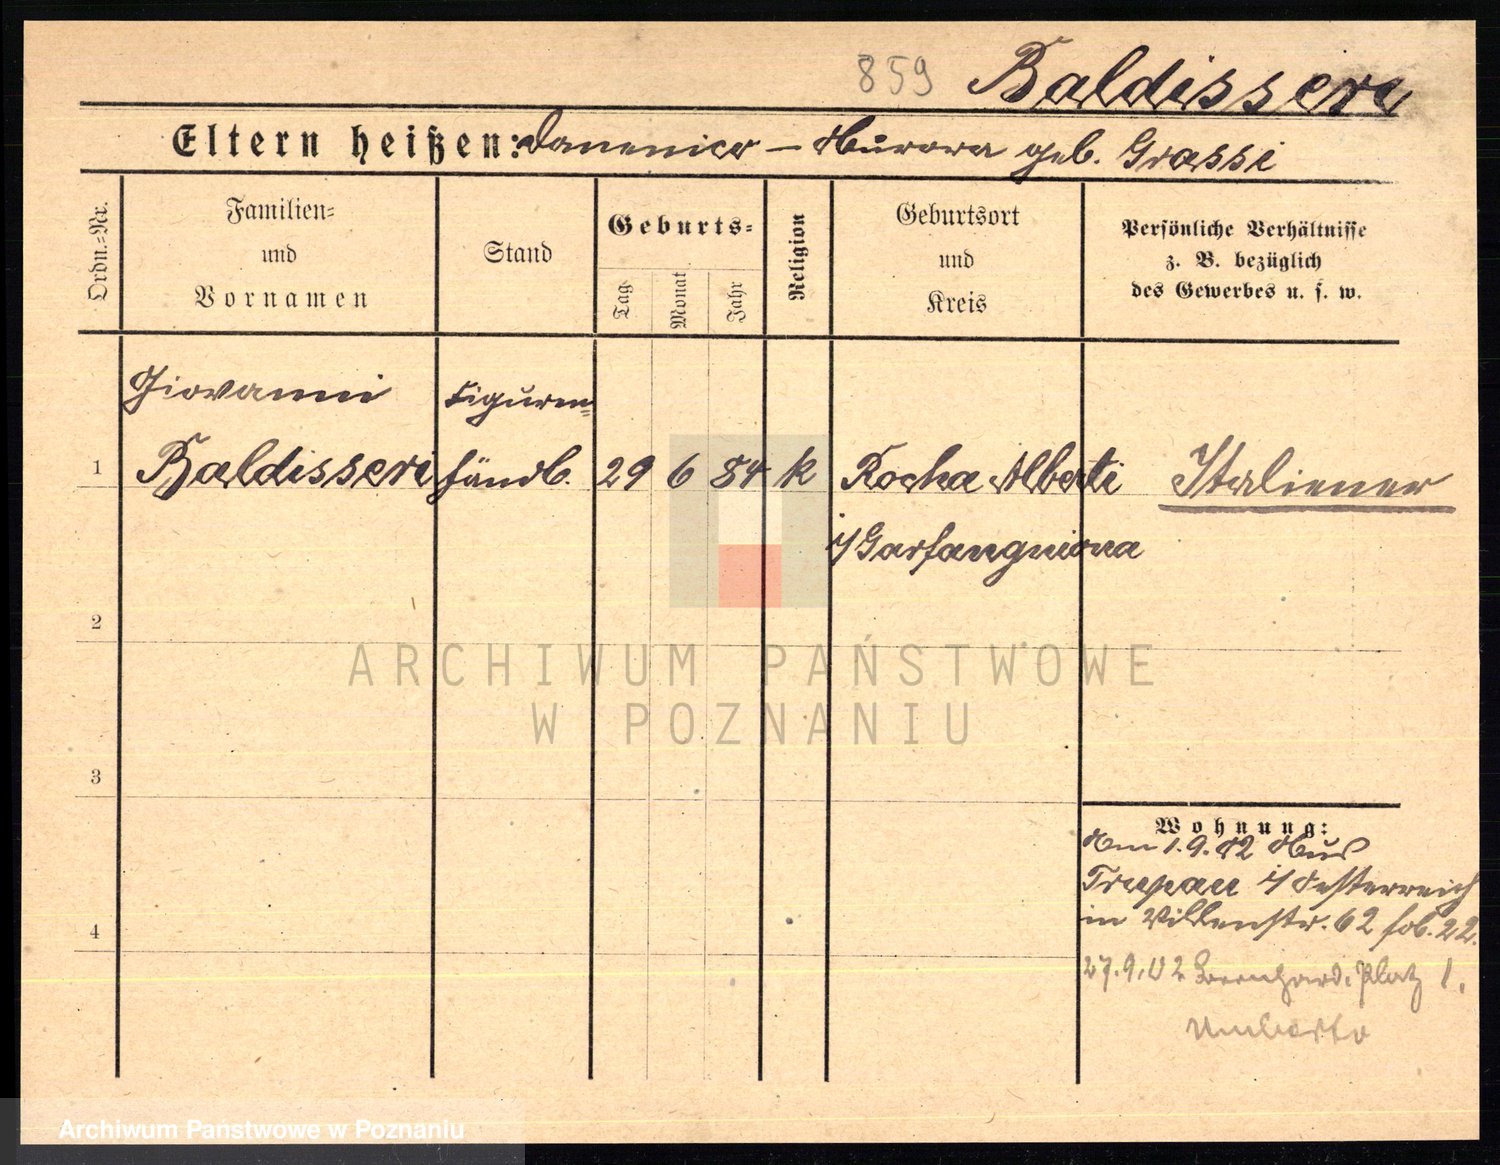 859 Baldisseri
Eltern heißen: Domenico – Aurora geb. Grassi
Ordn.=Nr.
Familien=
und
Vornamen
Stand
Geburts=
Tag
Monat
Jahr
Religion
Geburtsort
und
Kreis
Persönliche Verhältnisse
z. B. bezüglich
des Gewerbes u. s. w.
Giovanni Figuren=
1 Baldisseri händl. 29 6 84 k Rocha Alberti Italiener
i/Garfangniona
2
ARCHIWUM PAŃSTWOWE
W POZNANIU
3
Wohnung:
Am 1.9.02 Aus
Troppau i/Oesterreich
in 62 22.
4
27.9.02 Bernhard. Platz 1.
Umberto
Archiwum Państwowe w Poznaniu